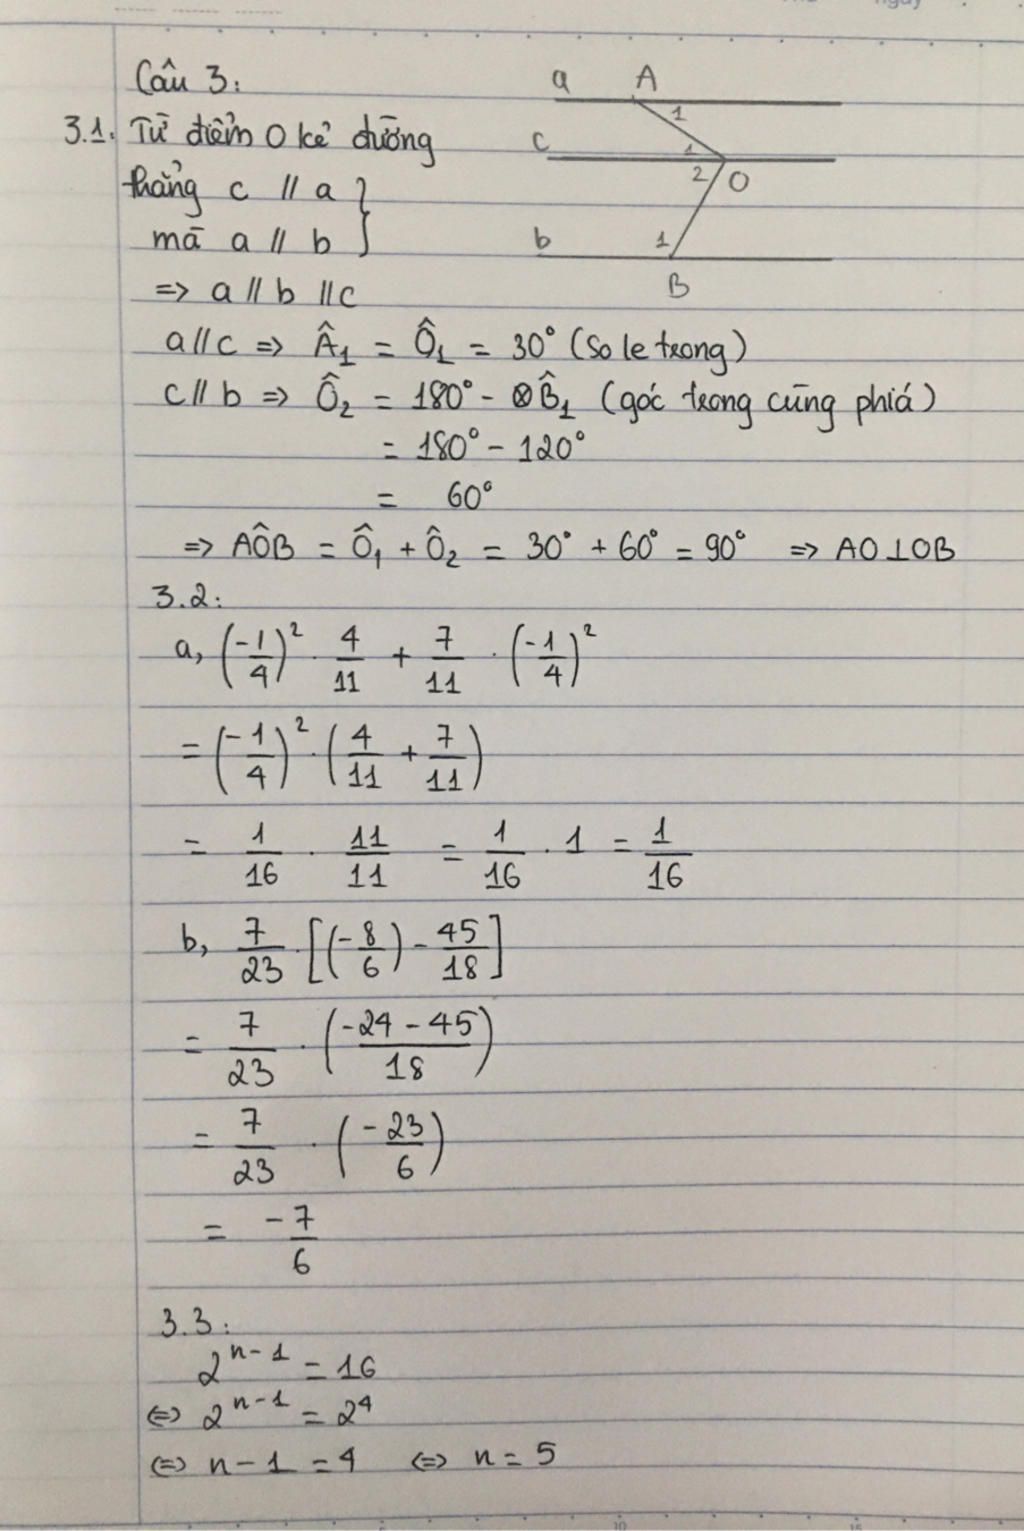 Câu 3:
3.1. Từ điểm O kẻ đường
thẳng c // a
mà a // b
=> a // b // c
a // c => Â₁ = Ô₁ = 30° (So le trong)
c // b => Ô₂ = 180° - B̂₁ (góc trong cùng phiá)
= 180° - 120°
= 60°
=> AÔB = Ô₁ + Ô₂ = 30° + 60° = 90° => AO ⊥ OB
a A
1
c 1
2 O
b 1
B
3.2:
a, (-1/4)² . 4/11 + 7/11 . (-1/4)²
= (-1/4)² . (4/11 + 7/11)
= 1/16 . 11/11 = 1/16 . 1 = 1/16
b, 7/23 . [(-8/6) - 45/18]
= 7/23 . (-24 - 45/18)
= 7/23 . (-23/6)
= -7/6
3.3:
2ⁿ⁻¹ = 16
<=> 2ⁿ⁻¹ = 2⁴
<=> n - 1 = 4 <=> n = 5